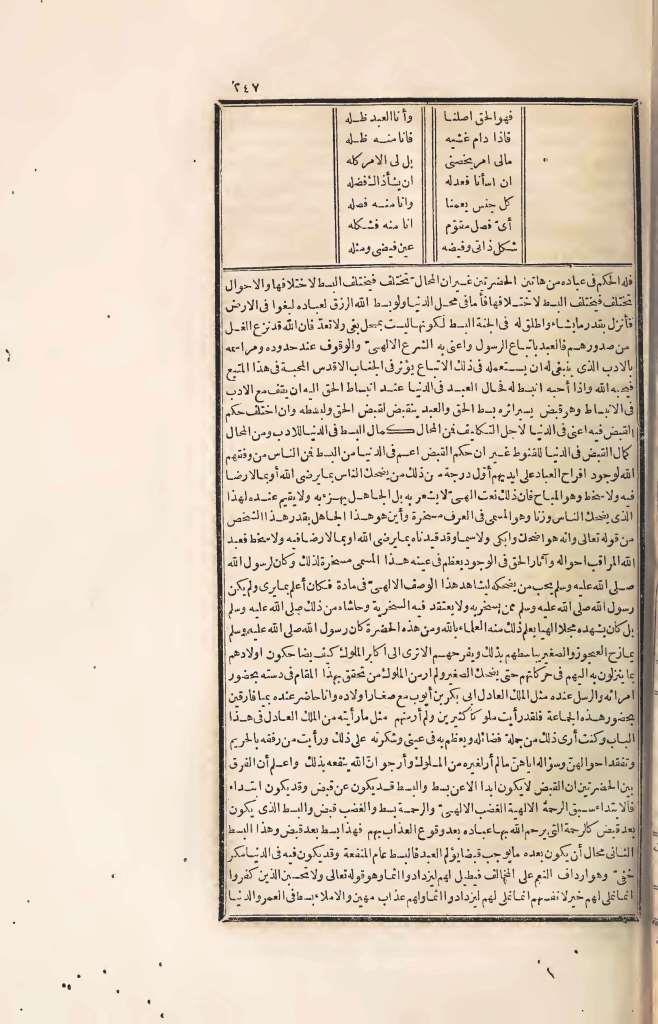 ٢٤٧
فهو الحق اصلنا وأنا العبد ظله
فاذا دام غشيه فانا منه ظله
مالى امر يخصنى بل لى الامر كله
ان اسأنا فعدله ان يشأ ذالـ فضله
كل جنس يعمنا وانا منه فصله
أى فصل مقوّم انا منه فشكله
شكل ذاتى وفيضه عين قيضى ومثله
فله الحكم فى عباده من هاتين الحضرتين غير ان المحال تختلف فيختلف البسط لاختلافها والاحوال
تختلف فيختلف البسط لاختلافها فأما فى محل الدنيا ولو بسط الله الرزق لعباده لبغوا فى الارض
فأنزل بقدر ما يشاء واطلق له فى الجنة البسط لكونها ليست بمحل بغى ولا تعدّ فان الله قد نزع الغل
من صدورهم فالعبد باتباع الرسول واعنى به الشرع الالهى والوقوف عند حدوده ومراسمه
بالادب الذى ينبغى له ان يستعمله فى ذلك الاتباع يؤثر فى الجناب الاقدس المحبة فى هذا المتبع
فيحبه الله واذا أحبه انبسط له فحال العبد فى الدنيا عند انبساط الحق اليه ان يقف مع الادب
فى الانبساط وهو قبض يسير اثره بسط الحق والعبد ينقبض لقبض الحق ولبسطه وان اختلف حكم
القبض فيه اعنى فى الدنيا لاجل التكليف فمن المحال كمال البسط فى الدنيا للادب ومن المحال
كمال القبض فى الدنيا للقنوط غير ان حكم القبض اعم فى الدنيا من البسط فمن الناس من وفقهم
الله لوجود افراح العباد على ايديهم أوّل درجة من ذلك من يضحك الناس بما يرضى الله أو بما لا رضا
فيه ولا سخط وهو المباح فان ذلك نعت الهى لا يشعر به بل الجاهل يهزء به ولا يقيم عنده لهذا
الذى يضحك الناس وزنا وهو المسمى فى العرف مسخرة وأين هو هذا الجاهل بقدر هذا الشخص
من قوله تعالى وانه هو اضحك وابكى ولا سيما وقد قيدناه بما يرضى الله او بما لا رضا فيه ولا سخط فعبد
الله المراقب احواله وآثار الحق فى الوجود يعظم فى عينه هذا المسمى مسخرة لذلك وكان رسول الله
صلى الله عليه وسلم يحب من يضحكه ليشاهد هذا الوصف الالهى فى مادة فكان أعلم بما يرى ولم يكن
رسول الله صلى الله عليه وسلم ممن يسخر به ولا يعتقد فيه السخرية وحاشاه من ذلك صلى الله عليه وسلم
بل كان يشهده مجلا الهيا يعلم ذلك منه العلماء بالله ومن هذه الحضرة كان رسول الله صلى الله عليه وسلم
يمازح العجوز والصغير يباسطهم بذلك ويفرحهم الا ترى الى أكابر الملوك كيف يضاحكون اولادهم
بما ينزلون به اليهم فى حركاتهم حتى يضحك الصغير ولم ار من الملوك من تحقق بهذا المقام فى دسته بحضور
امرائه والرسل عنده مثل الملك العادل ابى بكر بن أيوب مع صغار اولاده وانا حاضر عنده بميا فارقين
بحضور هذه الجماعة فلقد رأيت ملوكا كثيرين ولم أر منهم مثل ما رأيته من الملك العادل فى هذا
الباب وكنت أرى ذلك من جملة فضائله ويعظم به فى عينى وشكرته على ذلك ورأيت من رفقه بالحريم
وتفقد احوالهن وسؤاله اياهن ما لم أر لغيره من الملوك وأرجو انّ الله ينفعه بذلك واعلم أن الفرق
بين الحضرتين ان القبض لا يكون ابدا الا عن بسط والبسط قد يكون عن قبض وقد يكون ابتداء
فالابتداء سبق الرحمة الالهية الغضب الالهى والرحمة بسط والغضب قبض والبسط الذى يكون
بعد قبض كالرحمة التى يرحم الله بها عباده بعد وقوع العذاب بهم فهذا بسط بعد قبض وهذا البسط
الثانى محال أن يكون بعده ما يوجب قبضا يؤلم العبد فالبسط عام المنفعة وقد يكون فيه فى الدنيا مكر
خفىّ وهو ارداف النعم على المخالف فيطيل لهم ليزدادوا اثما وهو قوله تعالى ولا تحسبن الذين كفروا
انما نملى لهم خير لانفسهم انما نملى لهم ليزدادوا اثما ولهم عذاب مهين والاملاء بسط فى العمر والدنيا